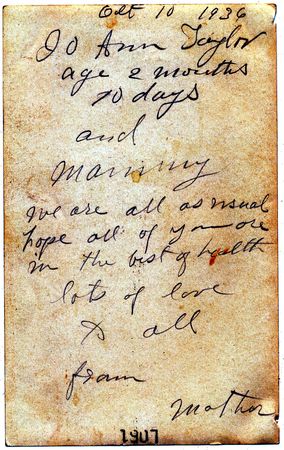 Oct 10 1936
Jo Ann Taylor
age 2 months
10 days
and
Mammy
we are all as usual
hope all of you are
in the best of health
lots of love
to all
from
Mother.
1907